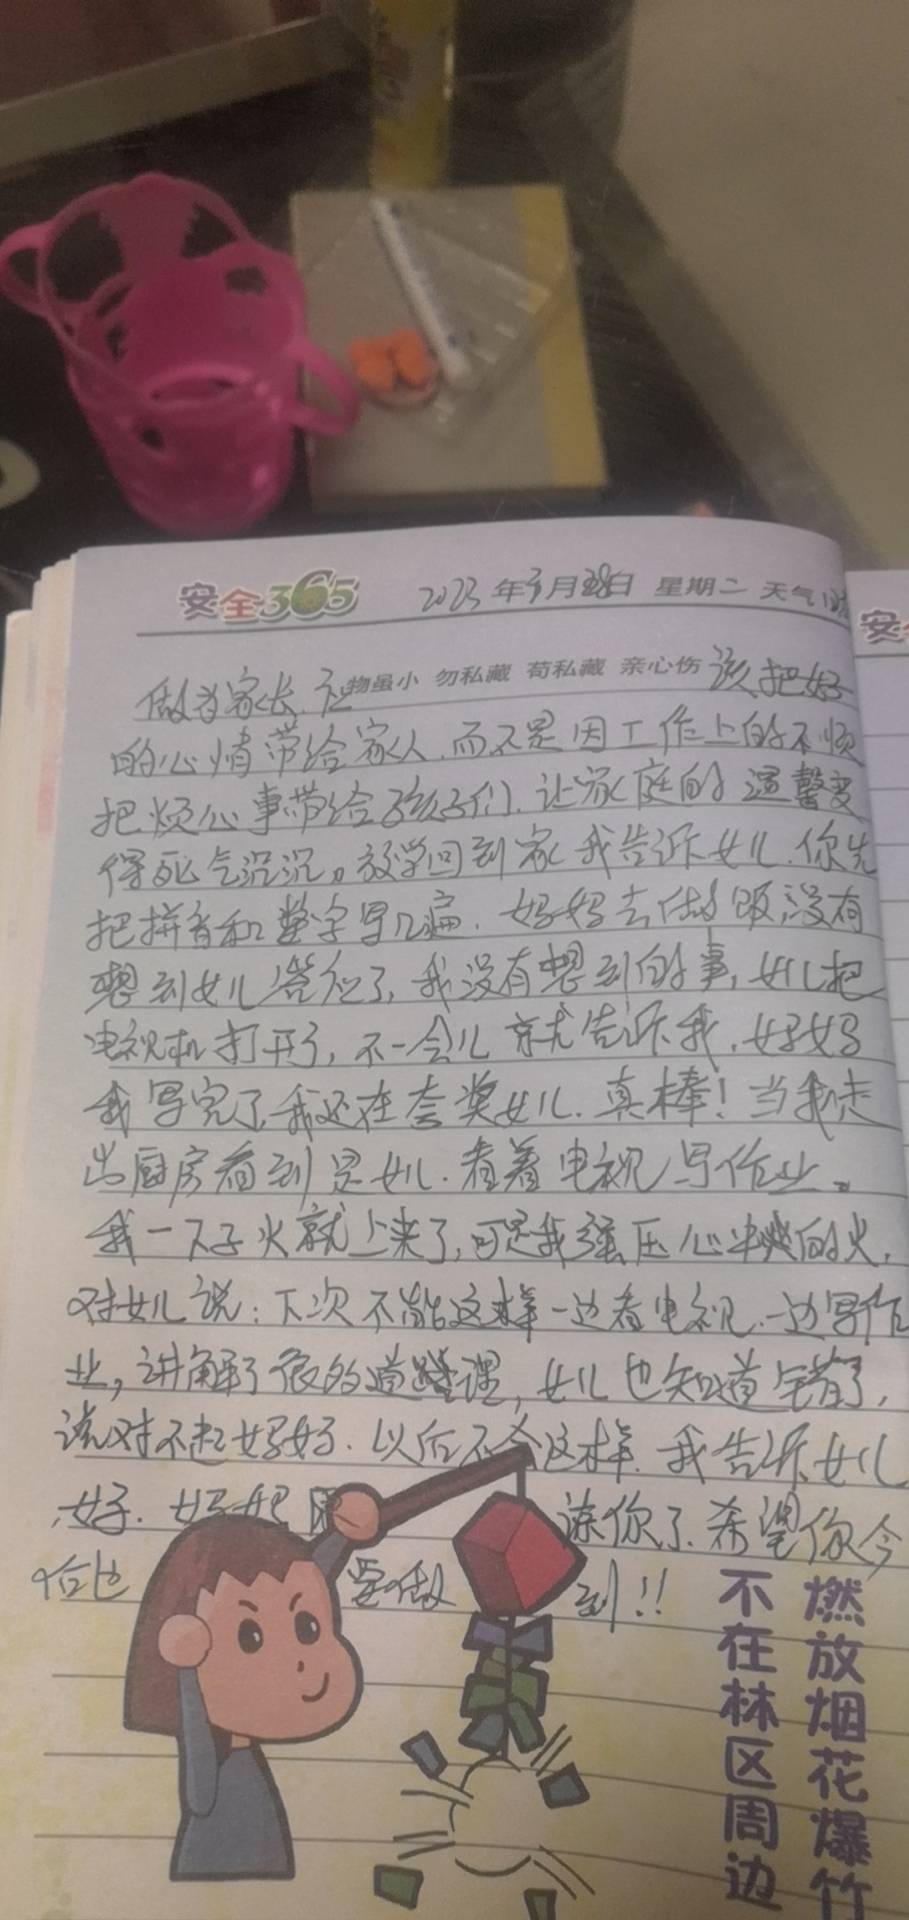 安全365 2023年3月28日 星期二 天气
安
物虽小 勿私藏 苟私藏 亲心伤
做为家长,应该把好
的心情带给家人,而不是因工作上的不顺
把烦心事带给孩子们,让家庭的温馨变
得死气沉沉。放学回到家我告诉女儿,你先
把拼音和数字写几遍,妈妈去做饭,没有
想到女儿答应了,我没有想到的事,女儿把
电视机打开了,不一会儿就告诉我,妈妈
我写完了,我还在夸奖女儿,真棒!当我走
出厨房看到是女儿,看着电视写作业。
我一下子火就上来了,可是我强压心中燃的火,
对女儿说:下次不能这样一边看电视,一边写作
业,讲解了很多道理,女儿也知道错了,
说对不起妈妈,以后不会这样,我告诉女儿
,好,妈妈原谅你了,希望你今
后也要做到!!
燃放烟花爆竹
不在林区周边